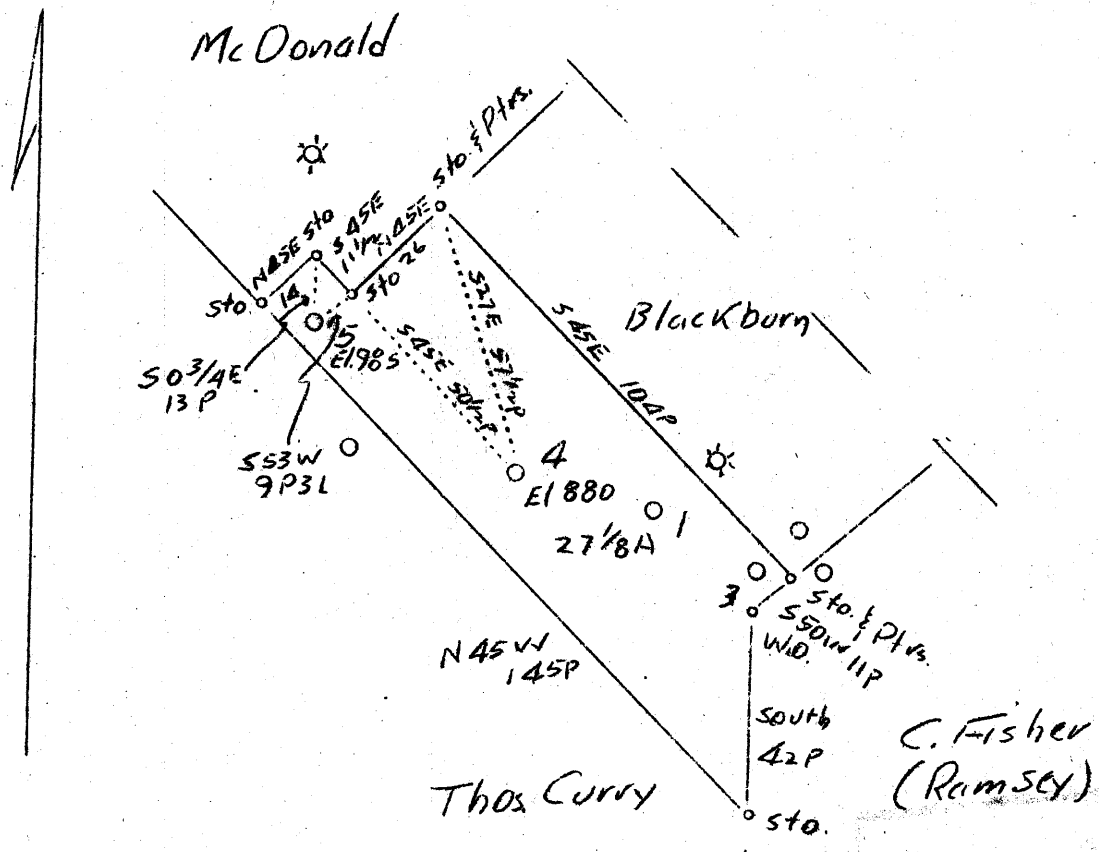 McDonald
Sto. & Ptrs.
N45E Sto
S45E
11 1/2P
N45E
Sto 26
Sto.
14
5
El.905
S0 3/4E
13P
S53W
9P3L
S45E 50 1/2P
S27E 57 1/2P
S45E 104P
Blackburn
4
El 880
27 1/8A
1
3
Sto. & Ptrs.
S50W 11P
W.O.
N45W
145P
South
42P
C. Fisher
(Ramsey)
Thos Curry
Sto.